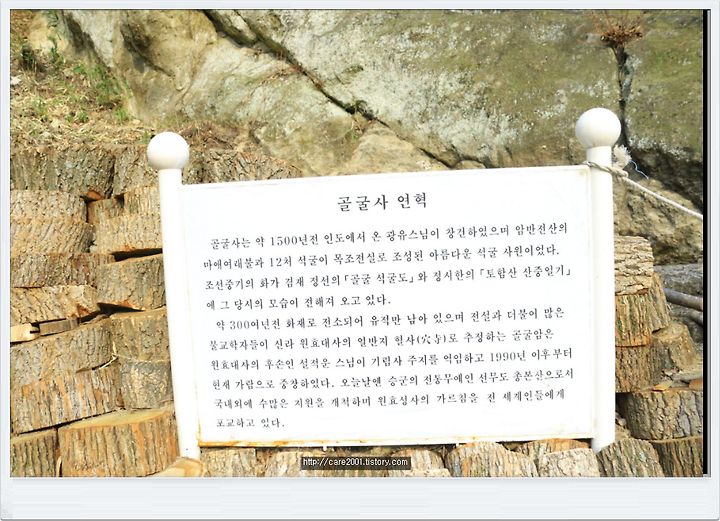 골굴사 연혁
골굴사는 약 1500년전 인도에서 온 광유스님이 창건하였으며 암반전산의
마애여래불과 12처 석굴이 목조전실로 조성된 아름다운 석굴 사원이었다.
조선중기의 화가 겸재 정선의「골굴 석굴도」와 정시한의「토함산 산중일기」
에 그 당시의 모습이 전해져 오고 있다.
약 300여년전 화재로 전소되어 유적만 남아 있으며 전설과 더불어 많은
불교학자들이 신라 원효대사의 열반지 혈사(穴寺)로 추정하는 골굴암은
원효대사의 후손인 설적운 스님이 기림사 주지를 역임하고 1990년 이후부터
현재 가람으로 중창하였다. 오늘날엔 승군의 전통무예인 선무도 총본산으로서
국내외에 수많은 지원을 개척하며 원효성사의 가르침을 전 세계인들에게
포교하고 있다.
http://care2001.tistory.com